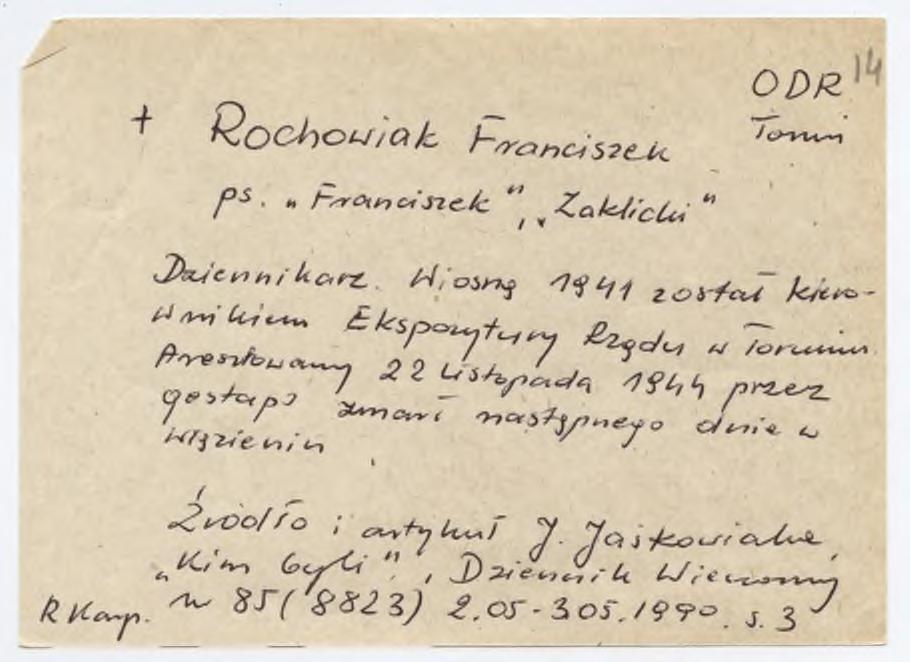 14
ODR
Toruń
+ Rochowiak Franciszek
ps. „Franciszek", „Zaklicki"
Dziennikarz. Wiosną 1941 został kiero-
wnikiem Ekspozytury Rządu w Toruniu.
Aresztowany 22 listopada 1944 przez
gestapo zmarł następnego dnia w
więzieniu
Źródło: artykuł J. Jaśkowiaka,
„Kim byli", Dziennik Wieczorny
nr 85 (8823) 2.05-3.05.1990. s. 3
R Karp.